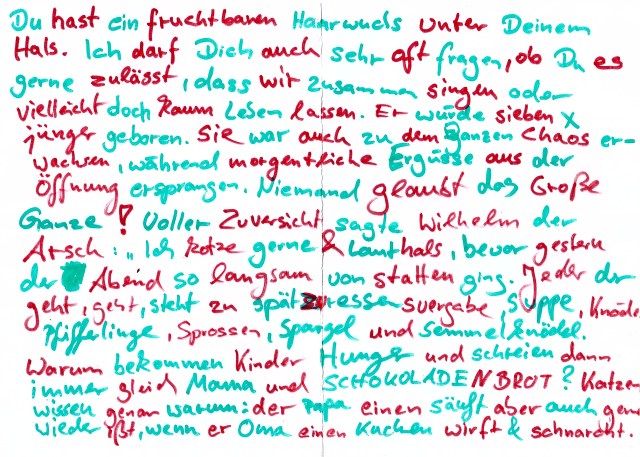 Du hast ein fruchtbaren Haarwuchs unter Deinem
Hals. Ich darf Dich auch sehr oft fragen, ob Du es
gerne zulässt, dass wir zusammen singen oder
vielleicht doch kaum Leben lassen. Er würde sieben x
jünger geboren. Sie war auch zu dem ganzen Chaos er-
wachsen, während morgentliche Ergüsse aus der
Öffnung ersprangen. Niemand glaubt das Große
Ganze ? Voller Zuversicht sagte Wilhelm der
Arsch: „Ich kotze gerne & lauthals, bevor gestern
der Abend so langsam von statten ging. Jeder der
geht, geht, steht zu spät zur essensvergabe, Suppe, Knödel
Pfifferlinge, Sprossen, Spargel und Semmelknödel.
Warum bekommen Kinder Hunger und schreien dann
immer gleich Mama und SCHOKOLADENBROT? Katzen
wissen genau warum: der Papa einen säuft aber auch gern
wieder ißt, wenn er Oma einen Kuchen wirft & schnarcht.